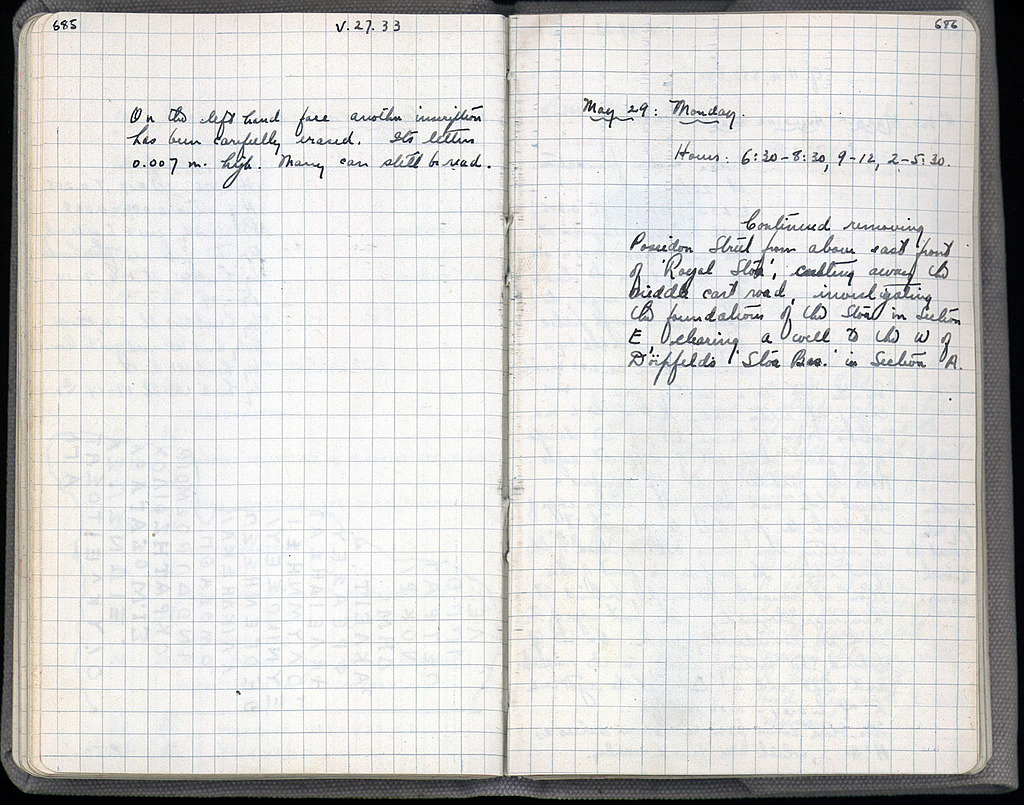 685
V. 27. 33
On the left hand face another inscription
has been carefully erased. Its letters
0.007 m. high. Many can still be read.
686
May 29: Monday.
Hours: 6:30-8:30, 9-12, 2-5:30.
Continued removing
Poseidon Street from above east front
of 'Royal Stoa', cutting away the
middle cart road, investigating
the foundations of the Stoa in Section
E, clearing a well to the W of
Dörpfeld's 'Stoa Bas.' in Section A.